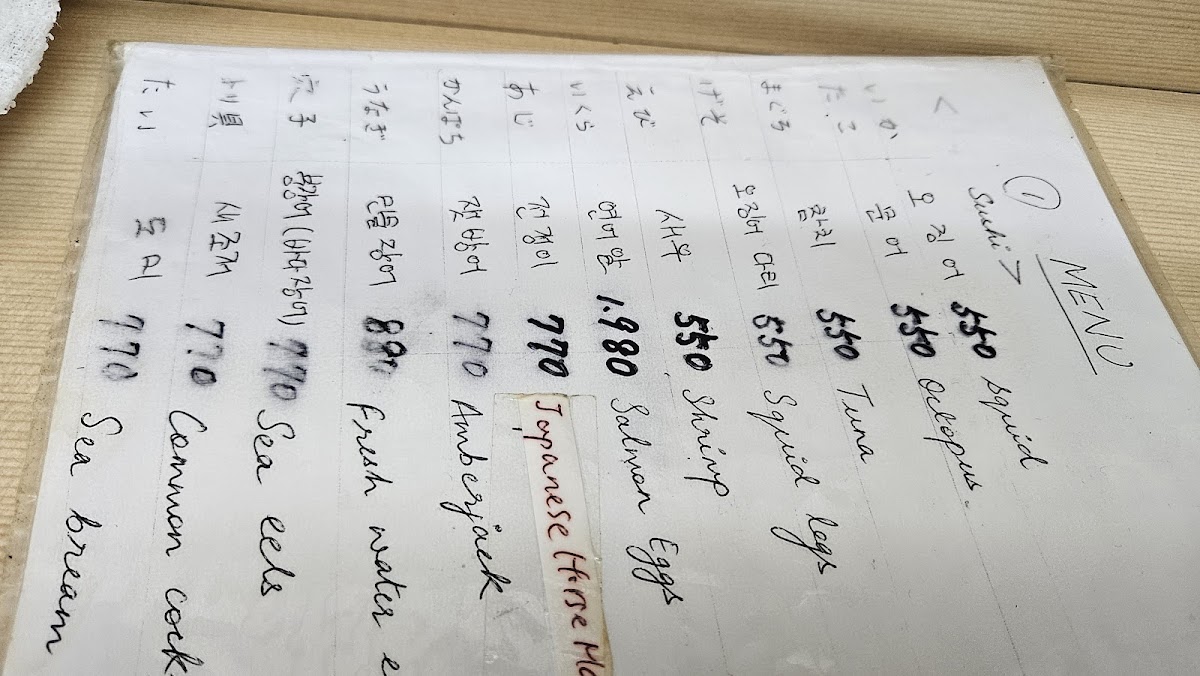 MENU
①
< Sushi >
いか 오징어 550 squid
たこ 문어 550 Octopus.
まぐろ 참치 550 Tuna
げそ 오징어 다리 550 Squid legs
えび 새우 550 Shrimp
いくら 연어알 1.980 Salmon Eggs
あじ 전갱이 770 Japanese Horse Ma
かんぱち 잿방어 770 Amberjack
うなぎ 민물장어 Fresh water e
穴子 붕장어(바다장어) 770 Sea eels
トリ貝 새조개 770 Common cock
たい 도미 770 Sea bream